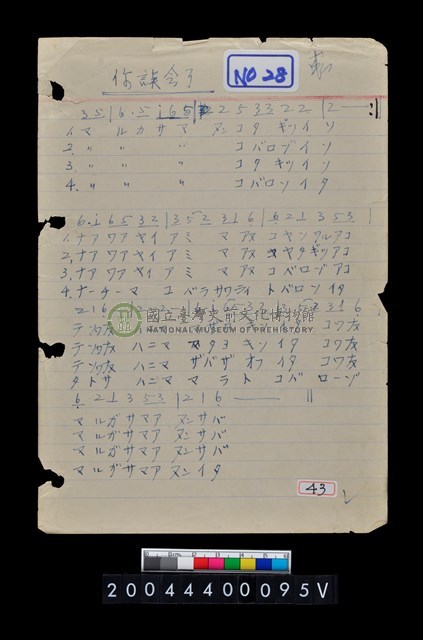 你誤会了
NO 28
3 5 | 6 . 5 i 6 5 | 2 5 3 3 2 2 | 2 — :||
1. マ ルガサマ ヌンコタ ギツイソ
2. 〃 〃 〃 コバロヅイソ
3. 〃 〃 〃 コタ ギツイソ
4. 〃 〃 〃 コバロンイタ
6 . i 6 5 3 2 | 3 5 2 3 1 6 | 6 2 1 3 5 3 |
1. ナア ワア ヤイ アミ マアヌ コヤンクルアコ
2. ナア ワア ヤイ アミ マアヌ コヤタギツアコ
3. ナア ワア ヤイ アミ マアヌ コベロージアコ
4. ナーチーマ コ ベラサワライ トベロンイタ
國立臺灣史前文化博物館
NATIONAL MUSEUM OF PREHISTORY
ハニマ マタヨ キンイタ コワ友
ハニマ ザバザ オフイタ コワ友
タトサ ハニマ マ ラト コバ ローゾ
6 2 1 3 5 3 | 2 1 6 — ||
マルガサマア ヌンサバ
マルガサマア ヌンサバ
マルガサマア ヌンサバ
マルガサマア ヌンイタ
43
20044400095V